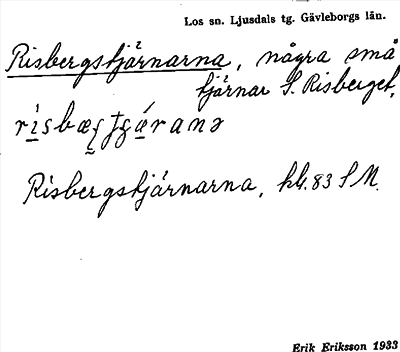 Los sn. Ljusdals tg. Gävleborgs län.
Risbergstjärnarna, några små
tjärnar S. Risberget,
Risbergstjärnarna, kbl. 83 S M.
Erik Eriksson 1933